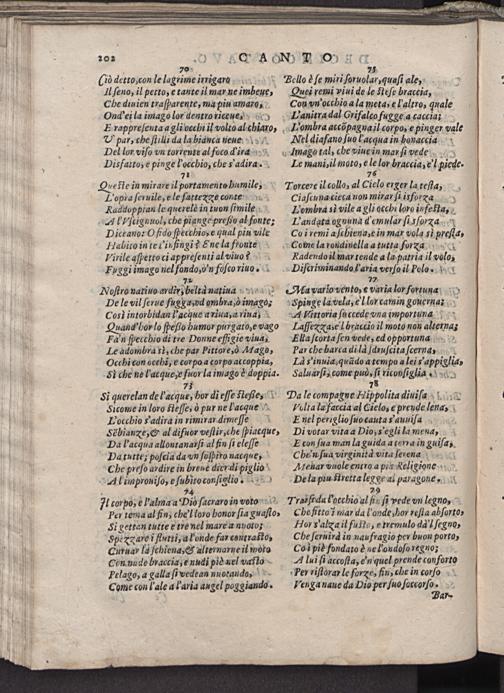 202 CANTO
70
Ciò detto, con le lagrime irrigaro
Il seno, il petto, e tante il mar ne imbeue,
Che diuien trasparente, ma piu amaro,
Ond'ei la imago lor dentro riceue,
E rappresenta a gli occhi il volto al chiaro,
V' par, che stilli da la bianca neue
Del lor viso vn torrente al foco d'ira
Disfatto, e pinge l'occhio, che s'adira.
71
Queste in mirare il portamento humile,
L'opia seruile, e le fattezze conte
Raddoppian le querele in tuon simile
A l'Vsignuol, che piange presso al fonte;
Diceano: O fido specchio e qual piu vile
Habito in te s'infingi? E ne la fronte
Virile aspetto ci appresenti al viuo?
Fuggi imago nel fondo, o'n fosco riuo.
72
Nostro natiuo ardir, beltà natina
De le vil serue fugga, od ombra, o imago;
Così intorbidan l'acque a riua, a riua,
Quand'hor lo spesso humor purgato, e vago
Fà'n specchio di tre Donne effigie viua,
Le adombra sì, che par Pittore, o Mago,
Occhi con occhi, e corpo a corpo accoppia,
Sì che ne l'acque, e fuor la imago è doppia.
73
Si querelan de l'acque, hor di esse stesse,
Si come in loro stesse, ò pur ne l'acque
L'occhio s'adira in rimirar dimesse
Sẽbianze, & al disuor vestir, che spiacque,
Da l'acqua allontanarsi al fin si elesse
Da tutte; poscia da vn sospiro nacque,
Che preso ardire in breue dier di piglio
A l'improuiso, e subito consiglio.
74
Il corpo, e l'alma a Dio sacraro in voto
Per tema al fin, che'l loro honor sia guasto.
Si gettan tutte e tre nel mare a nuoto;
Spezzaro i flutti, a l'onde far contrasto,
Curuar la schiena, & alternarne il moto
Con nude braccia, e nudi piè nel vasto
Pelago, a galla si vedean nuotando,
Come con l'ale a l'aria augel poggiando.
75
Bello è se miri soruolar, quasi ale,
Quei remi viui de le stese braccia,
Con vn'occhio a la meta, e l'altro, quale
L'anitra dal Grifalco fugge a caccia;
L'ombra accõpagna il corpo, e pinger vale
Nel diafano suo l'acqua in bonaccia
Imago tal, che viue in mar si vede
Le mani, il moto, e le lor braccia, e'l piede.
76
Torcere il collo, al Ciel erger la testa,
Ciascuna cieca non mirar si isforza
L'ombra sì vile a gli occhi loro infesta,
L'andata ogn'una d'emular si sforza
Co i remi a schiena, e in mar vola sì presta,
Come la rondinella a tutta forza
Radendo il mar tende a la patria il volo,
Discriminando l'aria verso il Polo.
77
Ma vario vento, e varia lor fortuna
Spinge la vela, e'l lor camin gouerna;
A Vittoria succede vna importuna
Lassezza, e'l braccio il moto non alterna;
Ella scorta sen vede, ed opportuna
Par che barca di là sdruscita scerna,
Là s'inuia, quãdo a tempo a lei s'appiglia,
Saluarsi, come può, si riconsiglia.
78
Da le compagne Hippolita diuisa
Volta la faccia al Cielo, e prende lena,
E nel periglio suo cauta s'auuisa
Di votar vita a Dio, s'egli la mena,
E con sua man la guida a terra in guisa,
Che'n sua virginità vita serena
Menar vuole entro a pia Religione
De la piu stretta legge al paragone.
79
Trasseda l'occhio al fin sì vede vn legno,
Che fitto i'mar da l'onde, hor resta absorto,
Hor s'alza il fusto, e tremulo dà'l segno,
Che seruirà in naufragio per buon porto,
Co i piè fondato è ne l'ondoso regno;
A lui si accosta, e'n quel prende conforto
Per ristorar le forze, fin, che in corso
Venga naue da Dio per suo soccorso.
Bar-